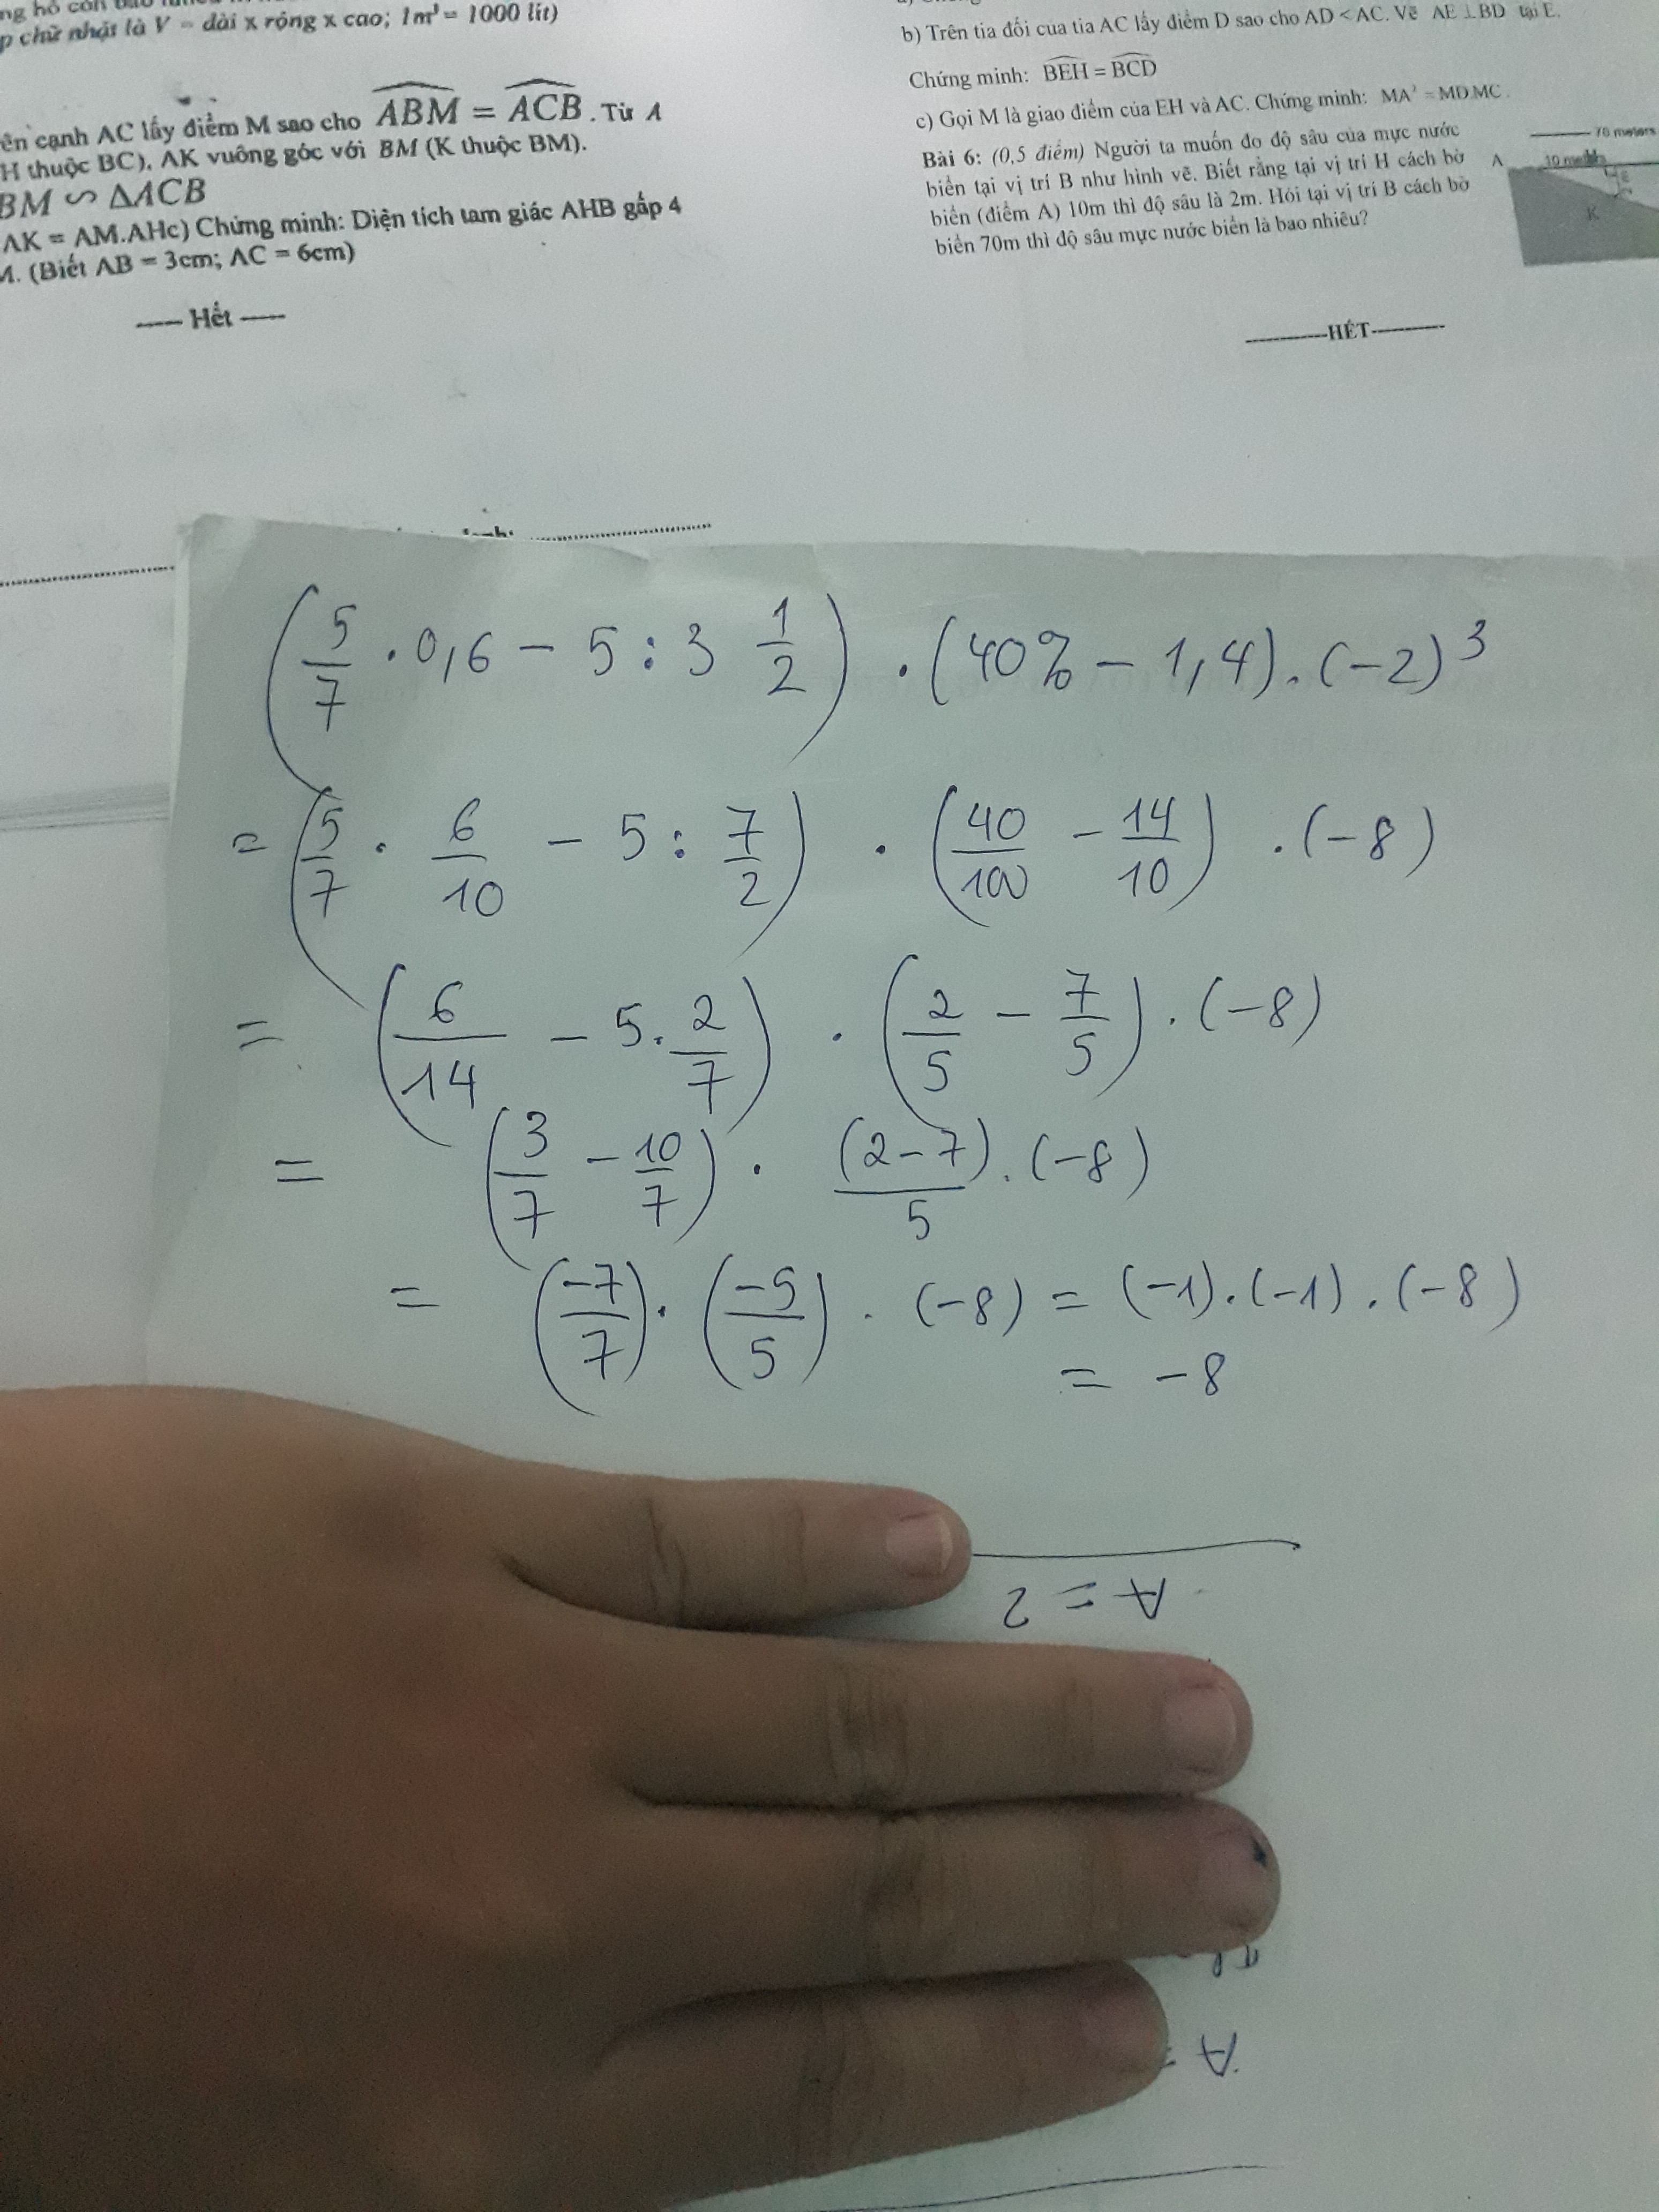 p chữ nhật là V = dài x rộng x cao; 1m³ = 1000 lít)
ên cạnh AC lấy điểm M sao cho ABM = ACB. Từ A
H thuộc BC), AK vuông góc với BM (K thuộc BM).
BM ∽ ΔACB
AK = AM.AHc) Chứng minh: Diện tích tam giác AHB gấp 4
M. (Biết AB = 3cm; AC = 6cm)
----- Hết -----
b) Trên tia đối của tia AC lấy điểm D sao cho AD < AC. Vẽ AE ⊥ BD tại E.
Chứng minh: BEH = BCD
c) Gọi M là giao điểm của EH và AC. Chứng minh: MA² = MD.MC.
Bài 6: (0,5 điểm) Người ta muốn đo độ sâu của mực nước
biển tại vị trí B như hình vẽ. Biết rằng tại vị trí H cách bờ
biển (điểm A) 10m thì độ sâu là 2m. Hỏi tại vị trí B cách bờ
biển 70m thì độ sâu mực nước biển là bao nhiêu?
70 meters
A
K
-----------HẾT----------
(5/7 . 0,6 - 5 : 3 1/2) . (40% - 1,4) . (-2)³
= (5/7 . 6/10 - 5 : 7/2) . (40/100 - 14/10) . (-8)
= (6/14 - 5 . 2/7) . (2/5 - 7/5) . (-8)
= (3/7 - 10/7) . (2-7)/5 . (-8)
= (-7/7) . (-5/5) . (-8) = (-1) . (-1) . (-8)
= -8
A = 2
A =